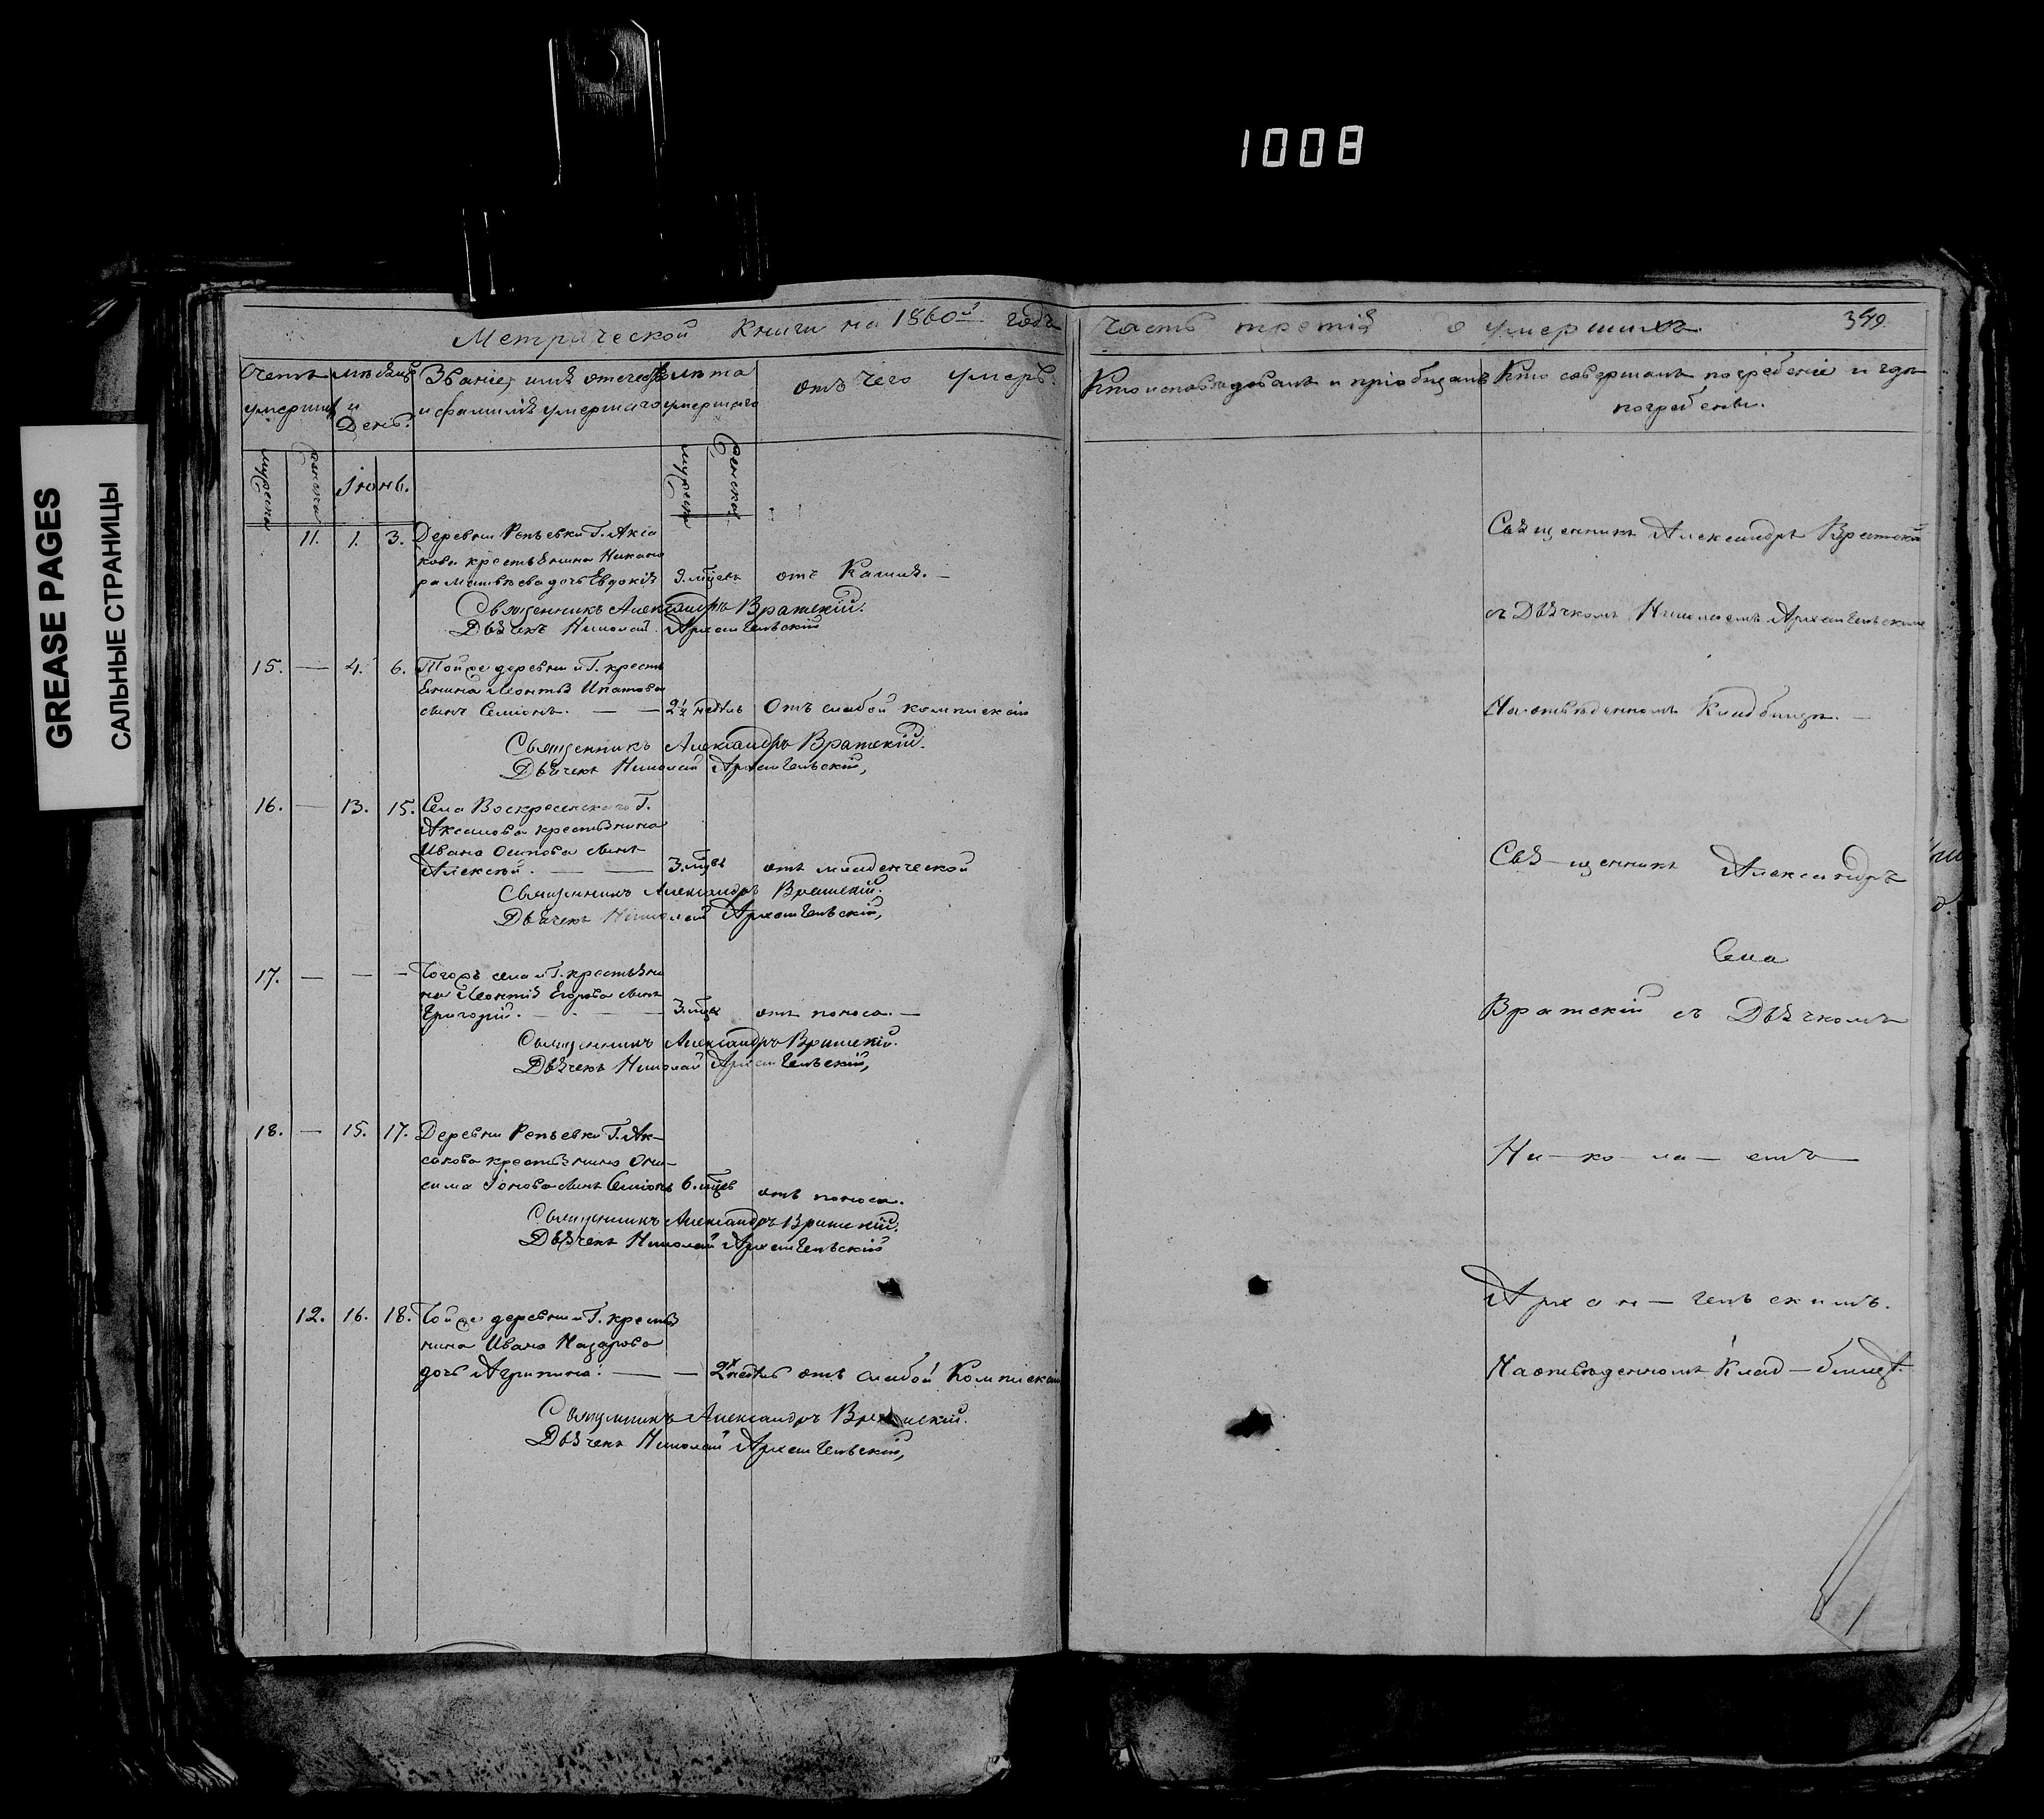 1008
GREASE PAGES
САЛЬНЫЕ СТРАНИЦЫ
Метрической книги на 1860й годъ
часть третія о умершихъ.
349
Счетъ умершихъ
мѣсяцъ и День.
Званіе, имя отечество и фамилія умершаго
лѣта умершаго
отъ чего умеръ.
Кто исповѣдовалъ и пріобщалъ
Кто совершалъ погребеніе и гдѣ погребены.
мужеска
женска
Іюнь.
мужеска
женска
11. 1. 3. Деревни Репьевки Г. Акса
кова крестьянина Никано
ра Матвѣева дочь Евдокія 3. мѣсяцъ отъ Кашля. —
Священникъ Александръ Вратскій.
Дьячекъ Николай Архангельскій
15. — 4. 6. Тойже деревни и Г. кресть
янина Леонтія Ипатова
сынъ Семіонъ. — — 2½ недѣль Отъ слабой комплекціи
Священникъ Александръ Вратскій.
Дьячекъ Николай Архангельскій,
16. — 13. 15. Села Воскресенскаго Г.
Аксакова крестьянина
Ивана Осипова сынъ
Алексѣй. — — 3. мѣсяц отъ младенческой
Священникъ Александръ Вратскій.
Дьячекъ Николай Архангельскій,
17. — — — Тогожъ села и Г. крестьяни
на Леонтія Егорова сынъ
Григорій. — — — 3. мѣсяц отъ поноса. —
Священникъ Александръ Вратскій.
Дьячекъ Николай Архангельскій,
18. — 15. 17. Деревни Репьевки Г. Ак—
сакова крестьянина Они—
сима Іонова сынъ Семіонъ 6. мѣсяцев отъ поноса.
Священникъ Александръ Вратскій.
Дьячекъ Николай Архангельскій
12. 16. 18. Тойже деревни и Г. крестья
нина Ивана Назарова
дочь Агрипина. — — 2х недѣль отъ слабой Комплекціи
Священникъ Александръ Вратскій.
Дьячекъ Николай Архангельскій,
Священникъ Александръ Вратскій
съ Дьячкомъ Николаемъ Архангельскимъ
На отведенномъ Кладбищѣ. —
Свя—щенникъ Александръ
Села
Вратскій съ Дьячкомъ
Ни—ко—ла—емъ —
Архан—гельскимъ.
На отведенномъ Клад—бищѣ.